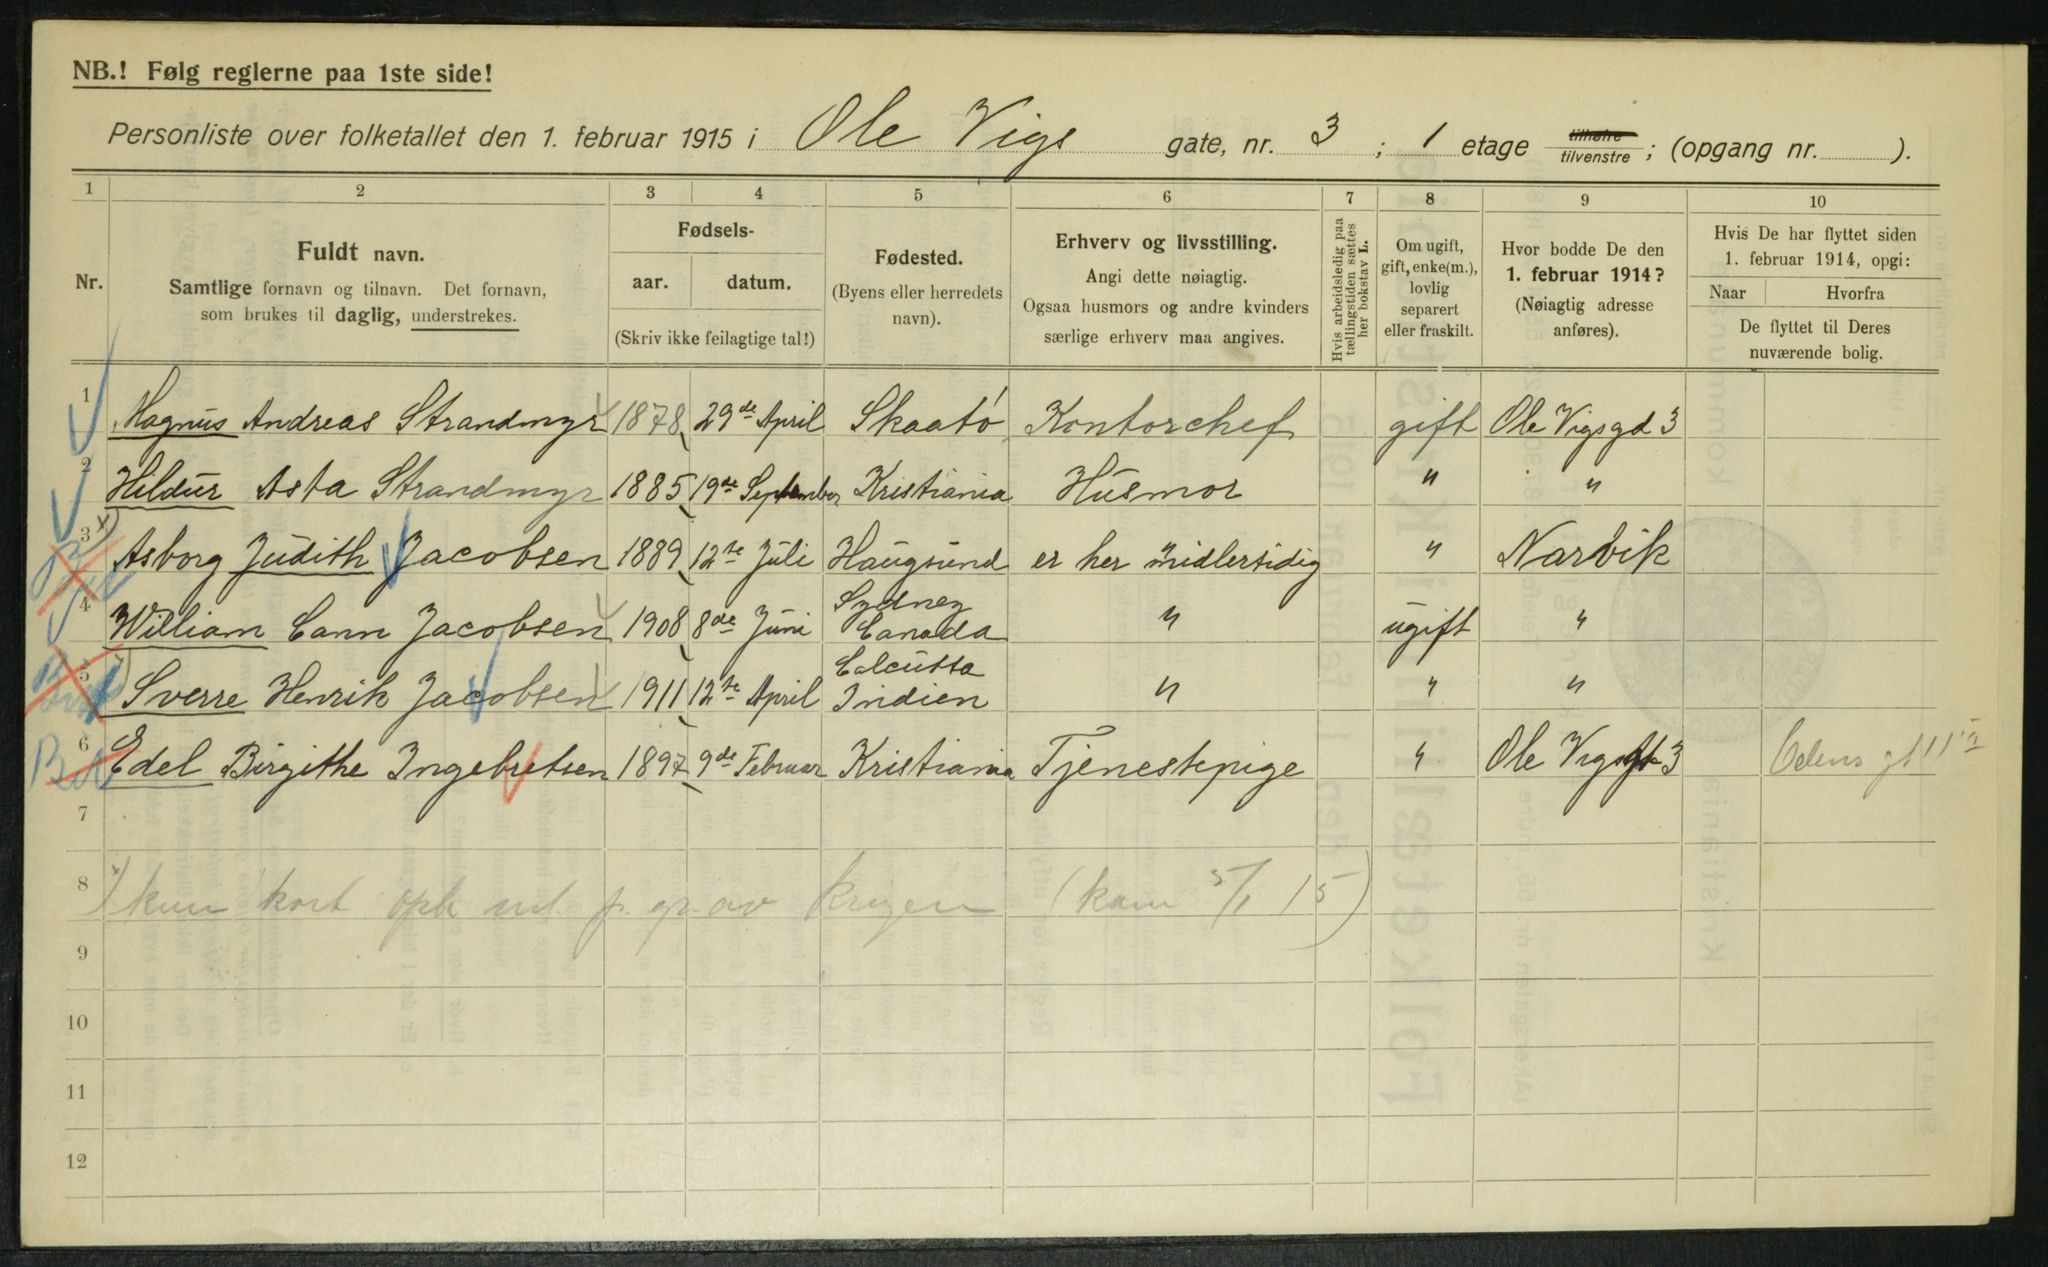 NB.! Følg reglerne paa 1ste side!
Personliste over folketallet den 1. februar 1915 i Ole Vigs gate, nr. 3 ; 1 etage tilhøire tilvenstre ; (opgang nr. ).
1 2 3 4 5 6 7 8 9 10
Nr.
Fuldt navn.
Samtlige fornavn og tilnavn. Det fornavn,
som brukes til daglig, understrekes.
Fødsels-
aar. datum.
(Skriv ikke feilagtige tal!)
Fødested.
(Byens eller herredets
navn).
Erhverv og livsstilling.
Angi dette nøiagtig.
Ogsaa husmors og andre kvinders
særlige erhverv maa angives.
Hvis arbeidsledig paa
tællingstiden sættes
her bokstav L.
Om ugift,
gift, enke(m.),
lovlig
separert
eller fraskilt.
Hvor bodde De den
1. februar 1914?
(Nøiagtig adresse
anføres).
Hvis De har flyttet siden
1. februar 1914, opgi:
Naar Hvorfra
De flyttet til Deres
nuværende bolig.
1 Magnus Andreas Strandmyr 1878 29de April Skaatö Kontorchef gift Ole Vigsgd 3
2 Hildur Asta Strandmyr 1885 19de September Kristiania Husmor " "
3 x) Asborg Judith Jacobsen 1889 12te Juli Haugsund er her midlertidig " Narvik
4 William Cann Jacobsen 1908 8de Juni Sydney Canada " ugift "
5 x) Sverre Henrik Jacobsen 1911 12te April Calcutta Indien " " "
6 Edel Birgithe Ingebretsen 1897 9de Februar Kristiania Tjenestepige " Ole Vigsgt 3
7
8 x) kun kort oph p. gr. av krigen (kom 5/1 15)
9
10
11
12